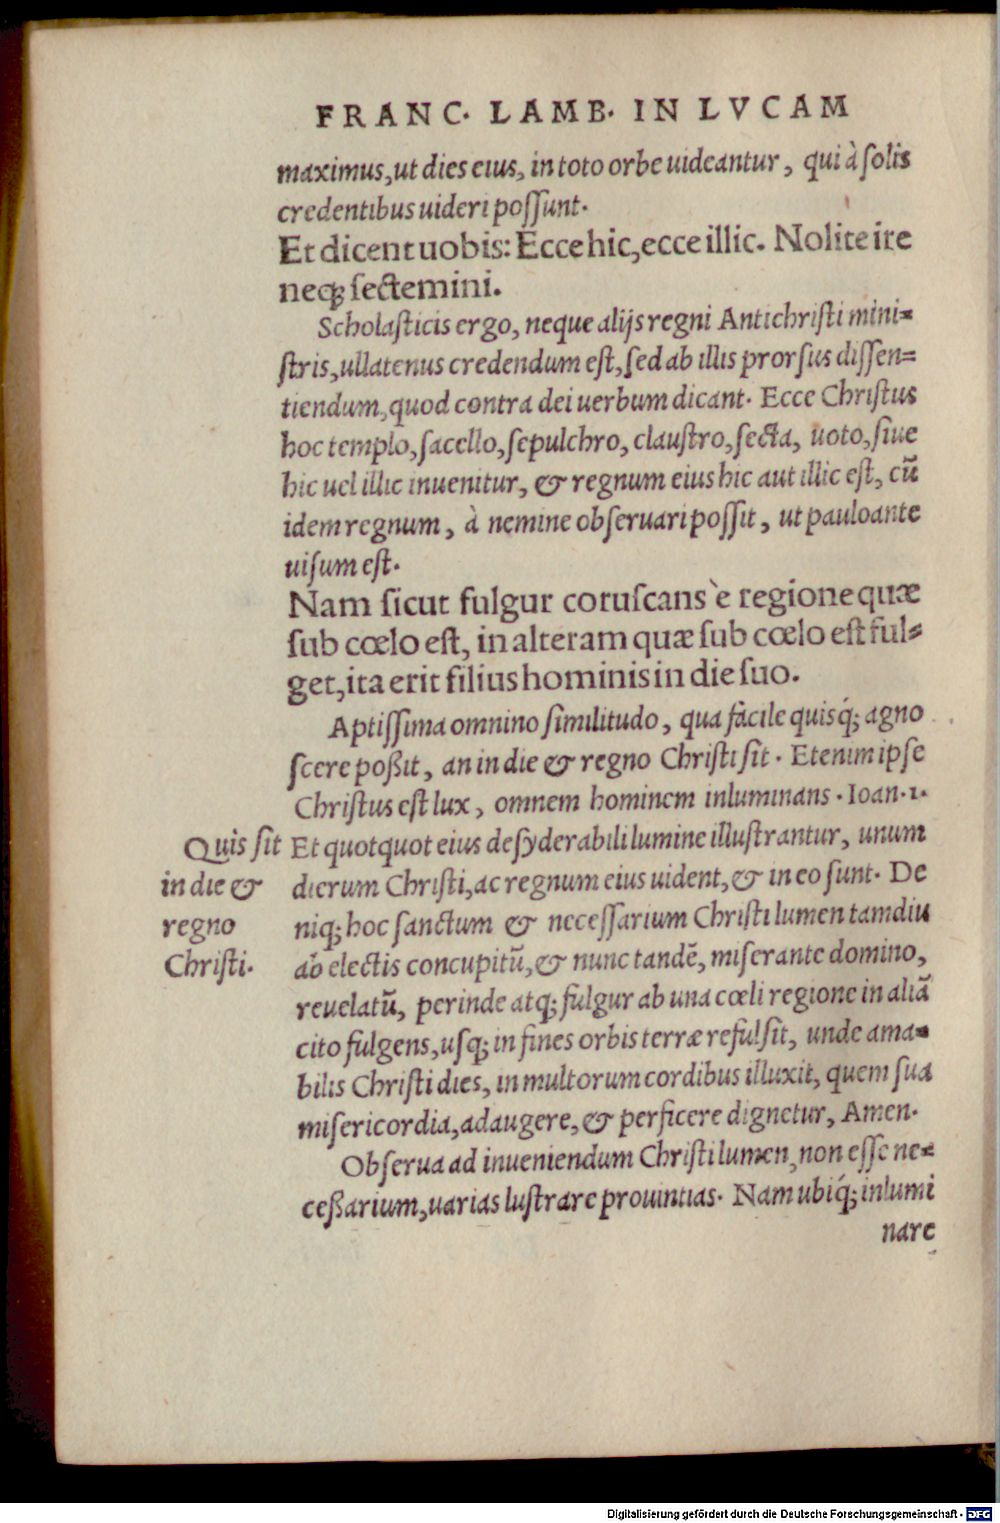 FRANC. LAMB. IN LVCAM
maximus, ut dies eius, in toto orbe uideantur, qui à solis
credentibus uideri possunt.
Et dicent uobis: Ecce hic, ecce illic. Nolite ire
neqꝫ sectemini.
Scholasticis ergo, neque alijs regni Antichristi mini-
stris, ullatenus credendum est, sed ab illis prorsus dissen-
tiendum, quod contra dei uerbum dicant. Ecce Christus
hoc templo, sacello, sepulchro, claustro, secta, uoto, siue
hic uel illic inuenitur, & regnum eius hic aut illic est, cū
idem regnum, à nemine obseruari possit, ut pauloante
uisum est.
Nam sicut fulgur coruscans è regione quæ
sub cœlo est, in alteram quæ sub cœlo est ful-
get, ita erit filius hominis in die suo.
Aptissima omnino similitudo, qua fàcile quisq́ꝫ agno
scere poßit, an in die & regno Christi sit. Etenim ipse
Christus est lux, omnem hominem inluminans. Ioan. 1.
Quis sit
in die &
regno
Christi.
Et quotquot eius desyderabili lumine illustrantur, unum
dierum Christi, ac regnum eius uident, & in eo sunt. De
niqꝫ hoc sanctum & necessarium Christi lumen tamdiu
ab electis concupitū, & nunc tandē, miserante domino,
reuelatū, perinde atqꝫ fulgur ab una cœli regione in aliā
cito fulgens, usqꝫ in fines orbis terræ refulsit, unde ama-
bilis Christi dies, in multorum cordibus illuxit, quem sua
misericordia, adaugere, & perficere dignetur, Amen.
Obserua ad inueniendum Christi lumen, non esse ne-
ceßarium, uarias lustrare prouintias. Nam ubiq́ꝫ inlumi
nare
Digitalisierung gefördert durch die Deutsche Forschungsgemeinschaft - DFG